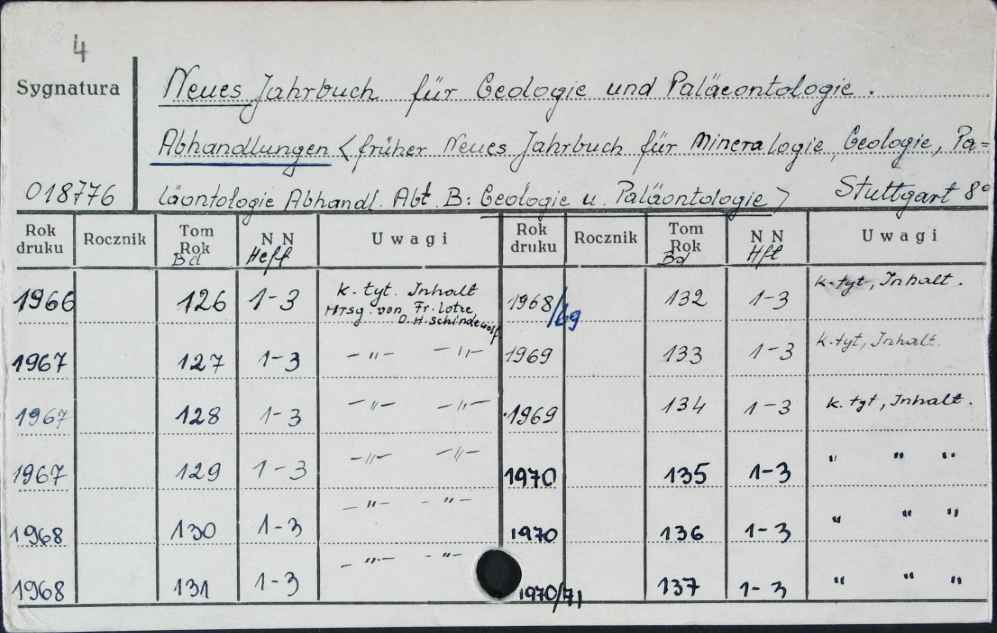 4
Sygnatura
Neues Jahrbuch für Geologie und Paläeontologie.
Abhandlungen <früher Neues Jahrbuch für Mineralogie, Geologie, Pa=
018776 läontologie Abhandl. Abt. B: Geologie u. Paläontologie> Stuttgart 8°
Rok druku Rocznik Tom Rok Bd N N Heft Uwagi Rok druku Rocznik Tom Rok Bd N N Hft Uwagi
1966 126 1-3 k. tyt. Inhalt 1968/69 132 1-3 k. tyt, Inhalt.
Hrsg. von Fr. Lotze
O. H. Schindewolf
1967 127 1-3 -"- -"- 1969 133 1-3 k. tyt, Inhalt.
1967 128 1-3 -"- -"- 1969 134 1-3 k. tyt, Inhalt.
1967 129 1-3 -"- -"- 1970 135 1-3 " " "
1968 130 1-3 -"- -"- 1970 136 1-3 " " "
1968 131 1-3 -"- -"- 1970/71 137 1-3 " " "